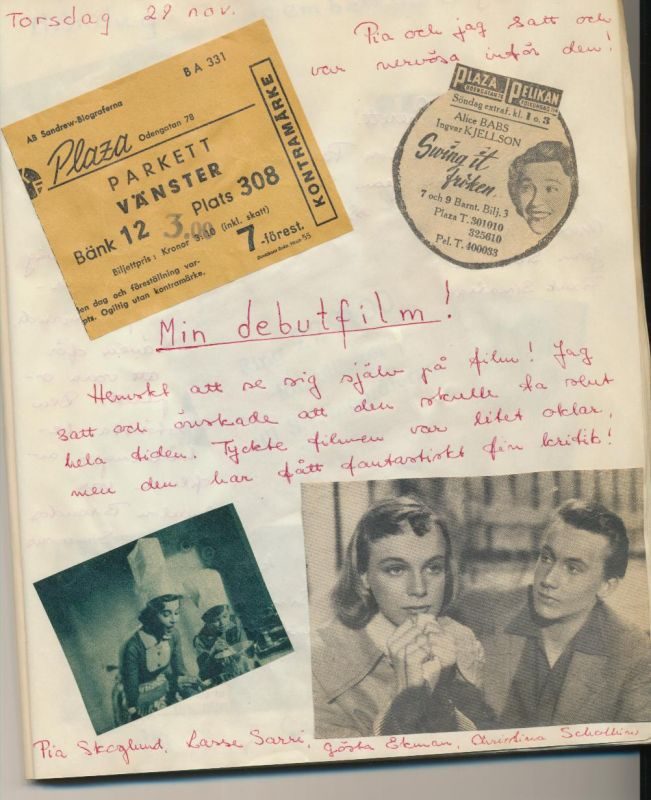 Torsdag 29 nov.
Pia och jag satt och
var nervösa inför den!
BA 331
AB Sandrew-Biograferna
Plaza Odengatan 78
PARKETT
VÄNSTER
Bänk 12 Plats 308
3.00
Biljettpris: Kronor (inkl. skatt)
7-förest.
KONTRAMÄRKE
en dag och föreställning var-
pts. Ogiltig utan kontramärke.
PLAZA PELIKAN
ODENGATAN 78
Söndag extraf. kl. 1 o. 3
Alice BABS
Ingvar KJELLSON
Swing it
fröken
7 och 9 Barnt. Bilj. 3
Plaza T. 301010
325610
Pel. T. 400033
Min debutfilm!
Hemskt att se sig själv på film! Jag
satt och önskade att den skulle ta slut
hela tiden. Tyckte filmen var litet oklar,
men den har fått fantastiskt fin kritik!
Pia Skoglund, Lasse Sarri, Gösta Ekman, Christina Schollin